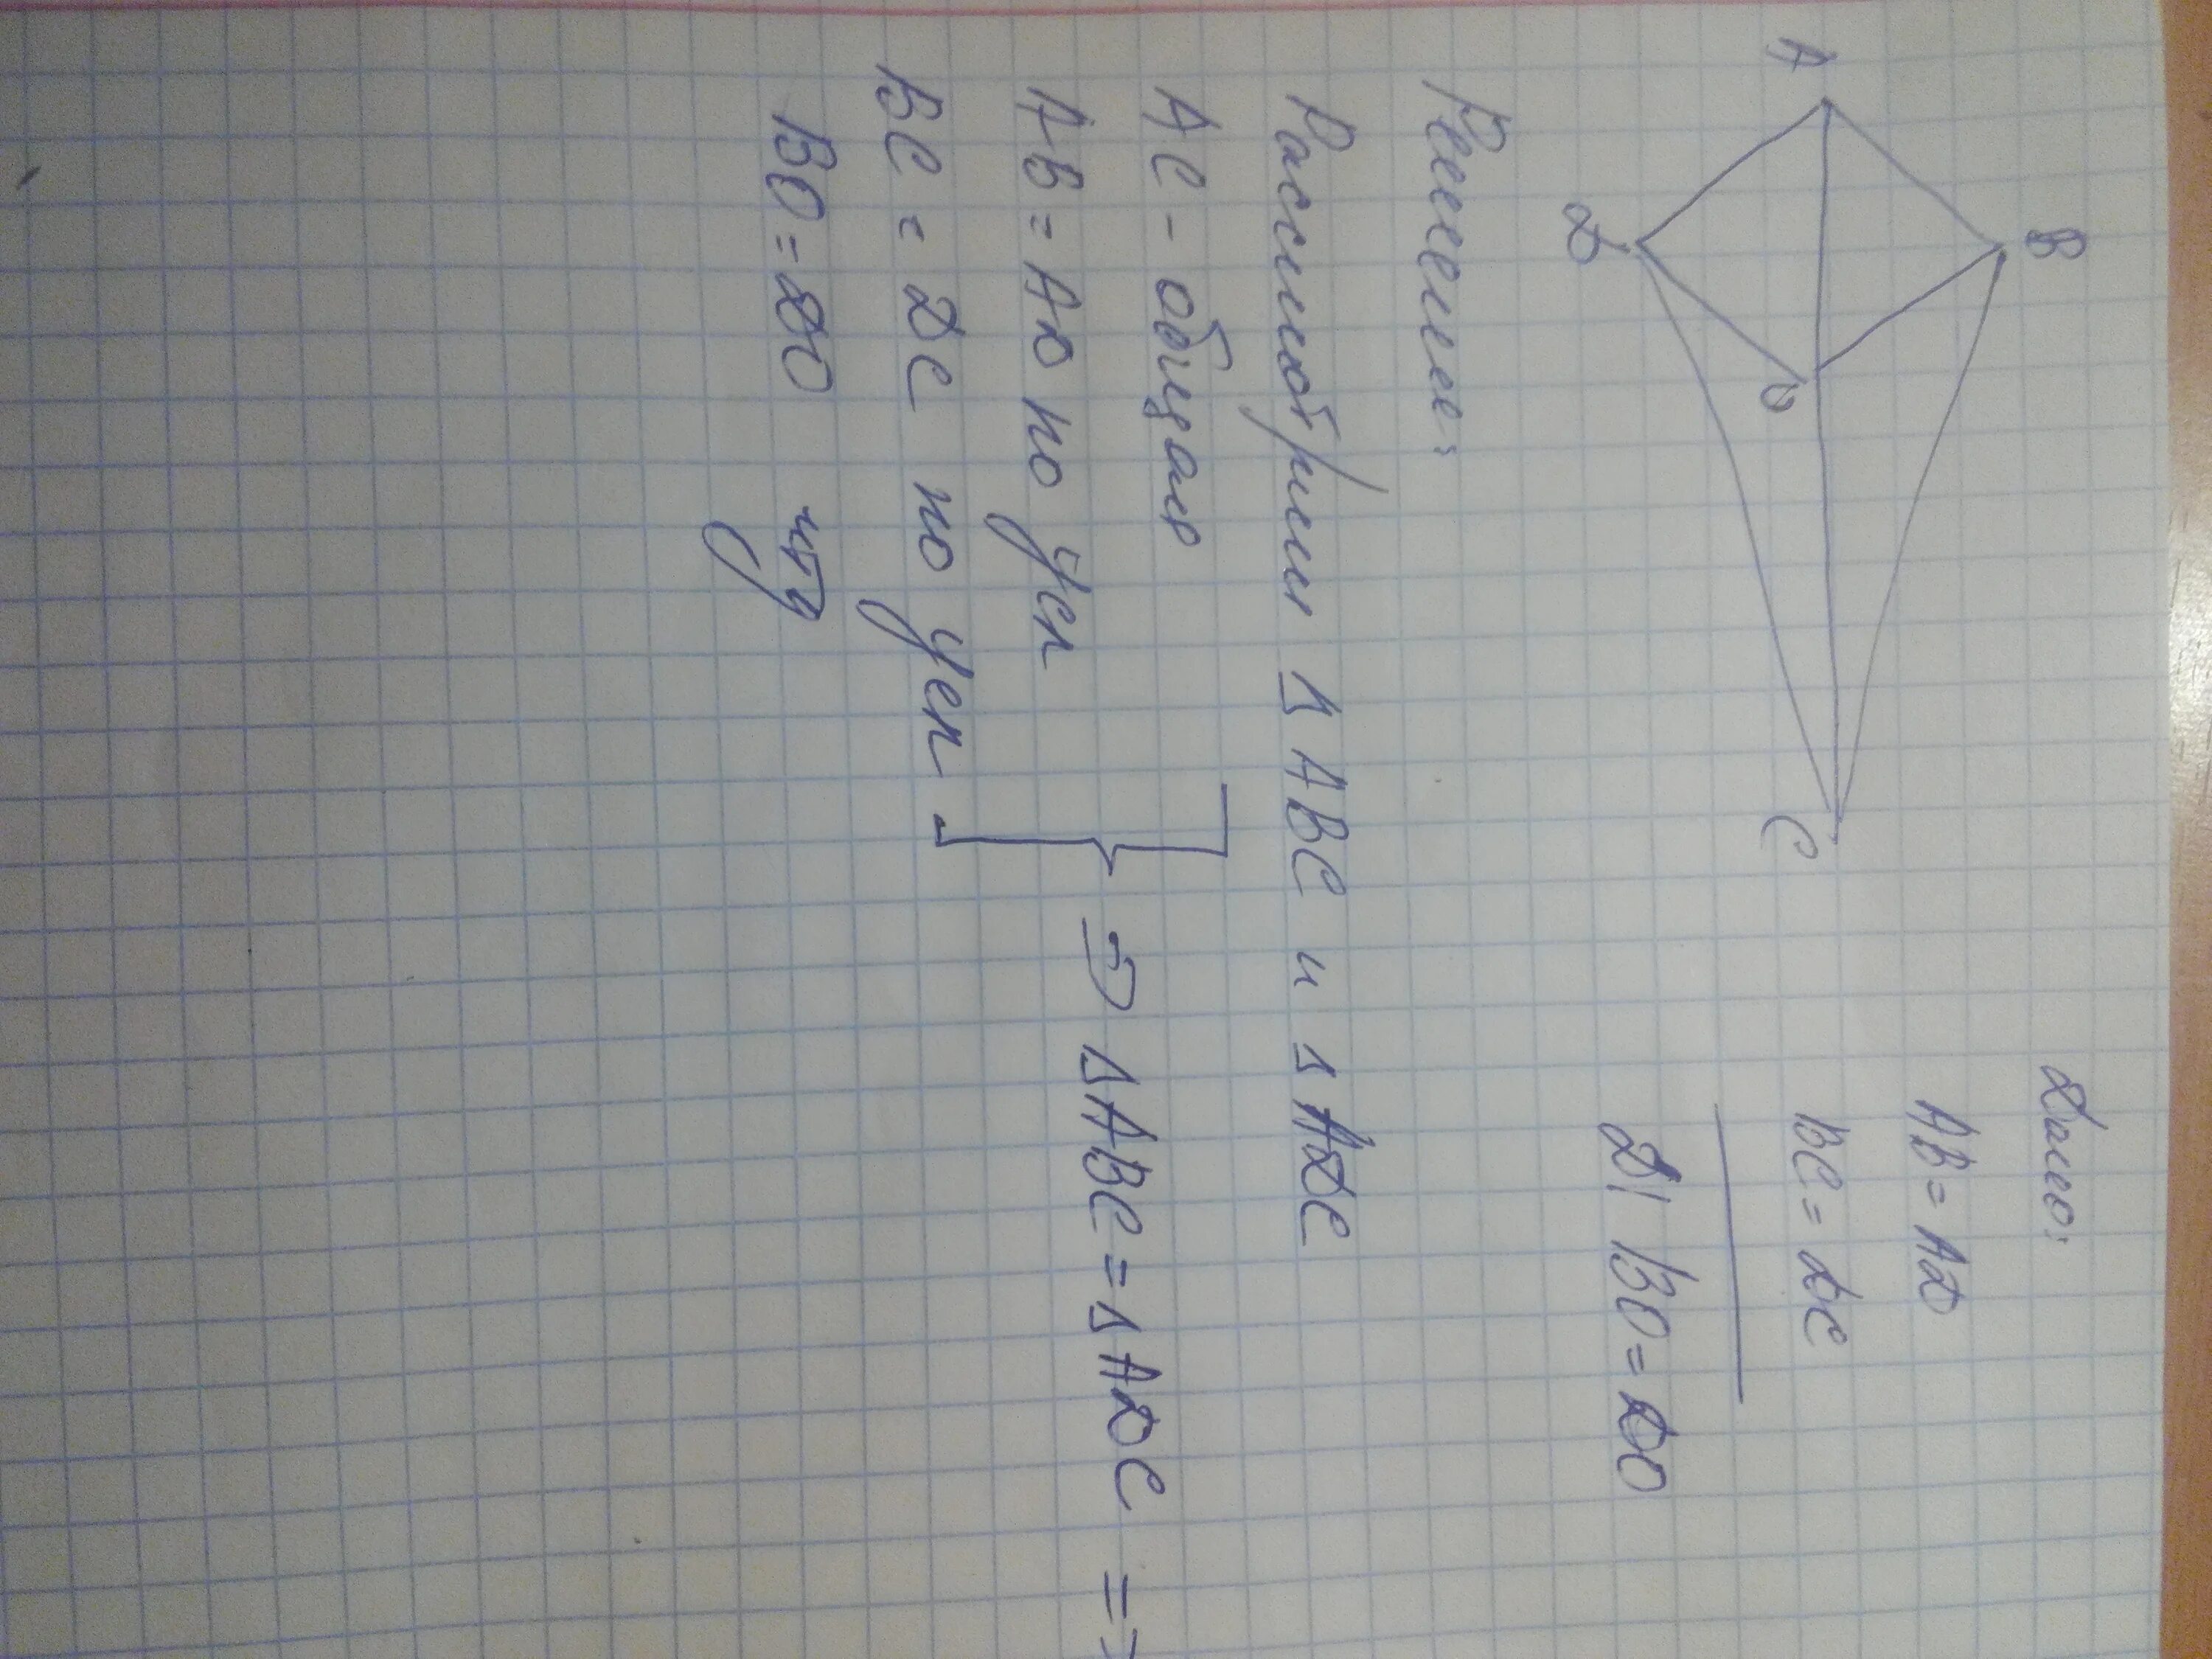 B
A
D
O
C
Дано:
AB = AD
BC = DC
Д/ BO = DO
Решение:
Рассмотрим Δ ABC и Δ ADC
AC - общая
AB = AD по усл
BC = DC по усл
⇒ Δ ABC = Δ ADC =>
BO = DO чтд